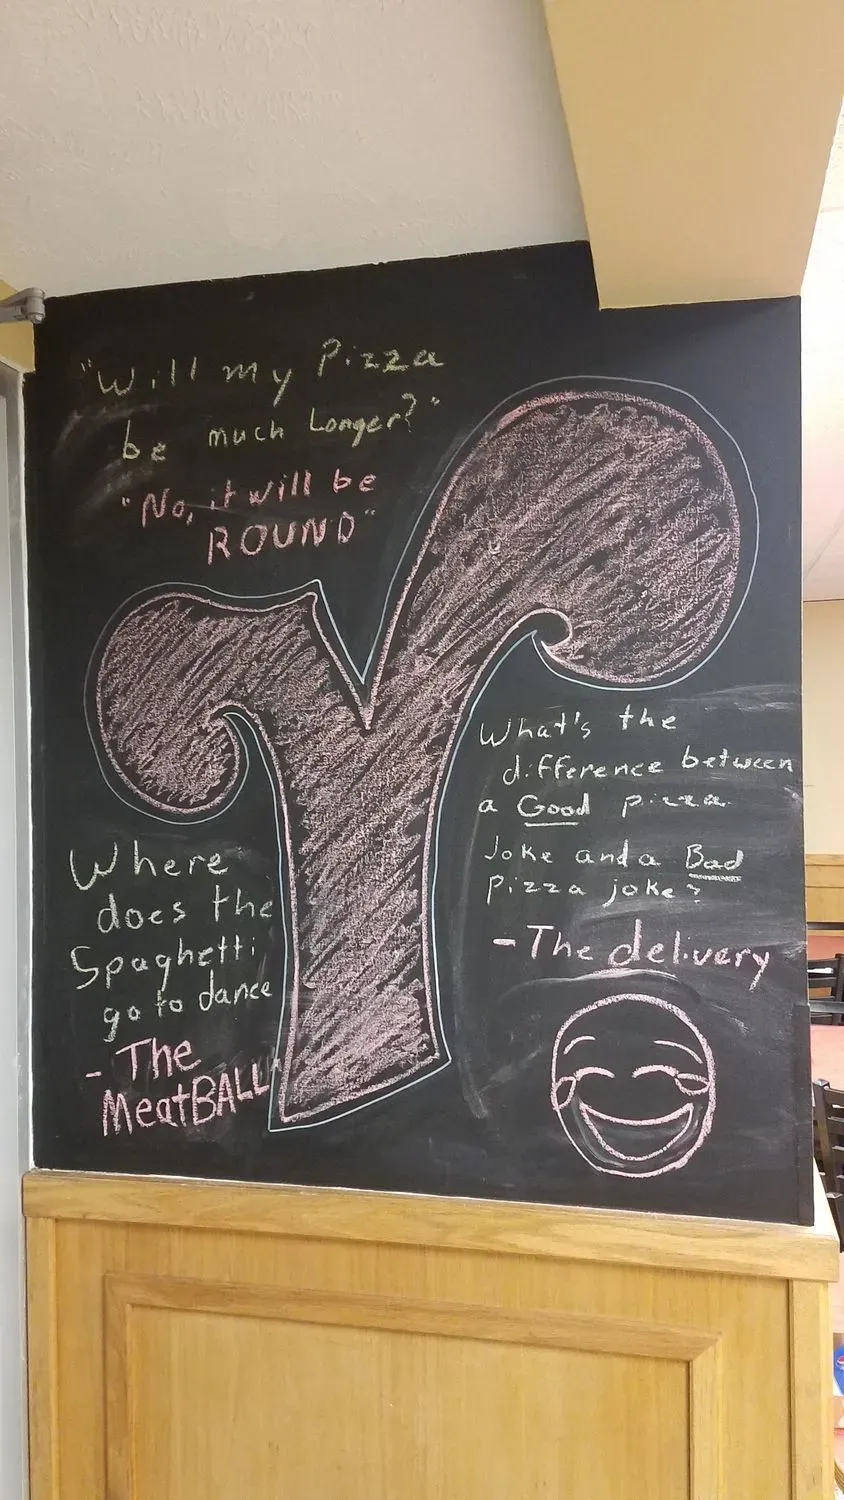 "Will my Pizza
be much Longer?"
"No, it will be
ROUND"
Where
does the
Spaghetti
go to dance
- The
MeatBALL
What's the
difference between
a Good pizza
Joke and a Bad
Pizza joke?
- The delivery